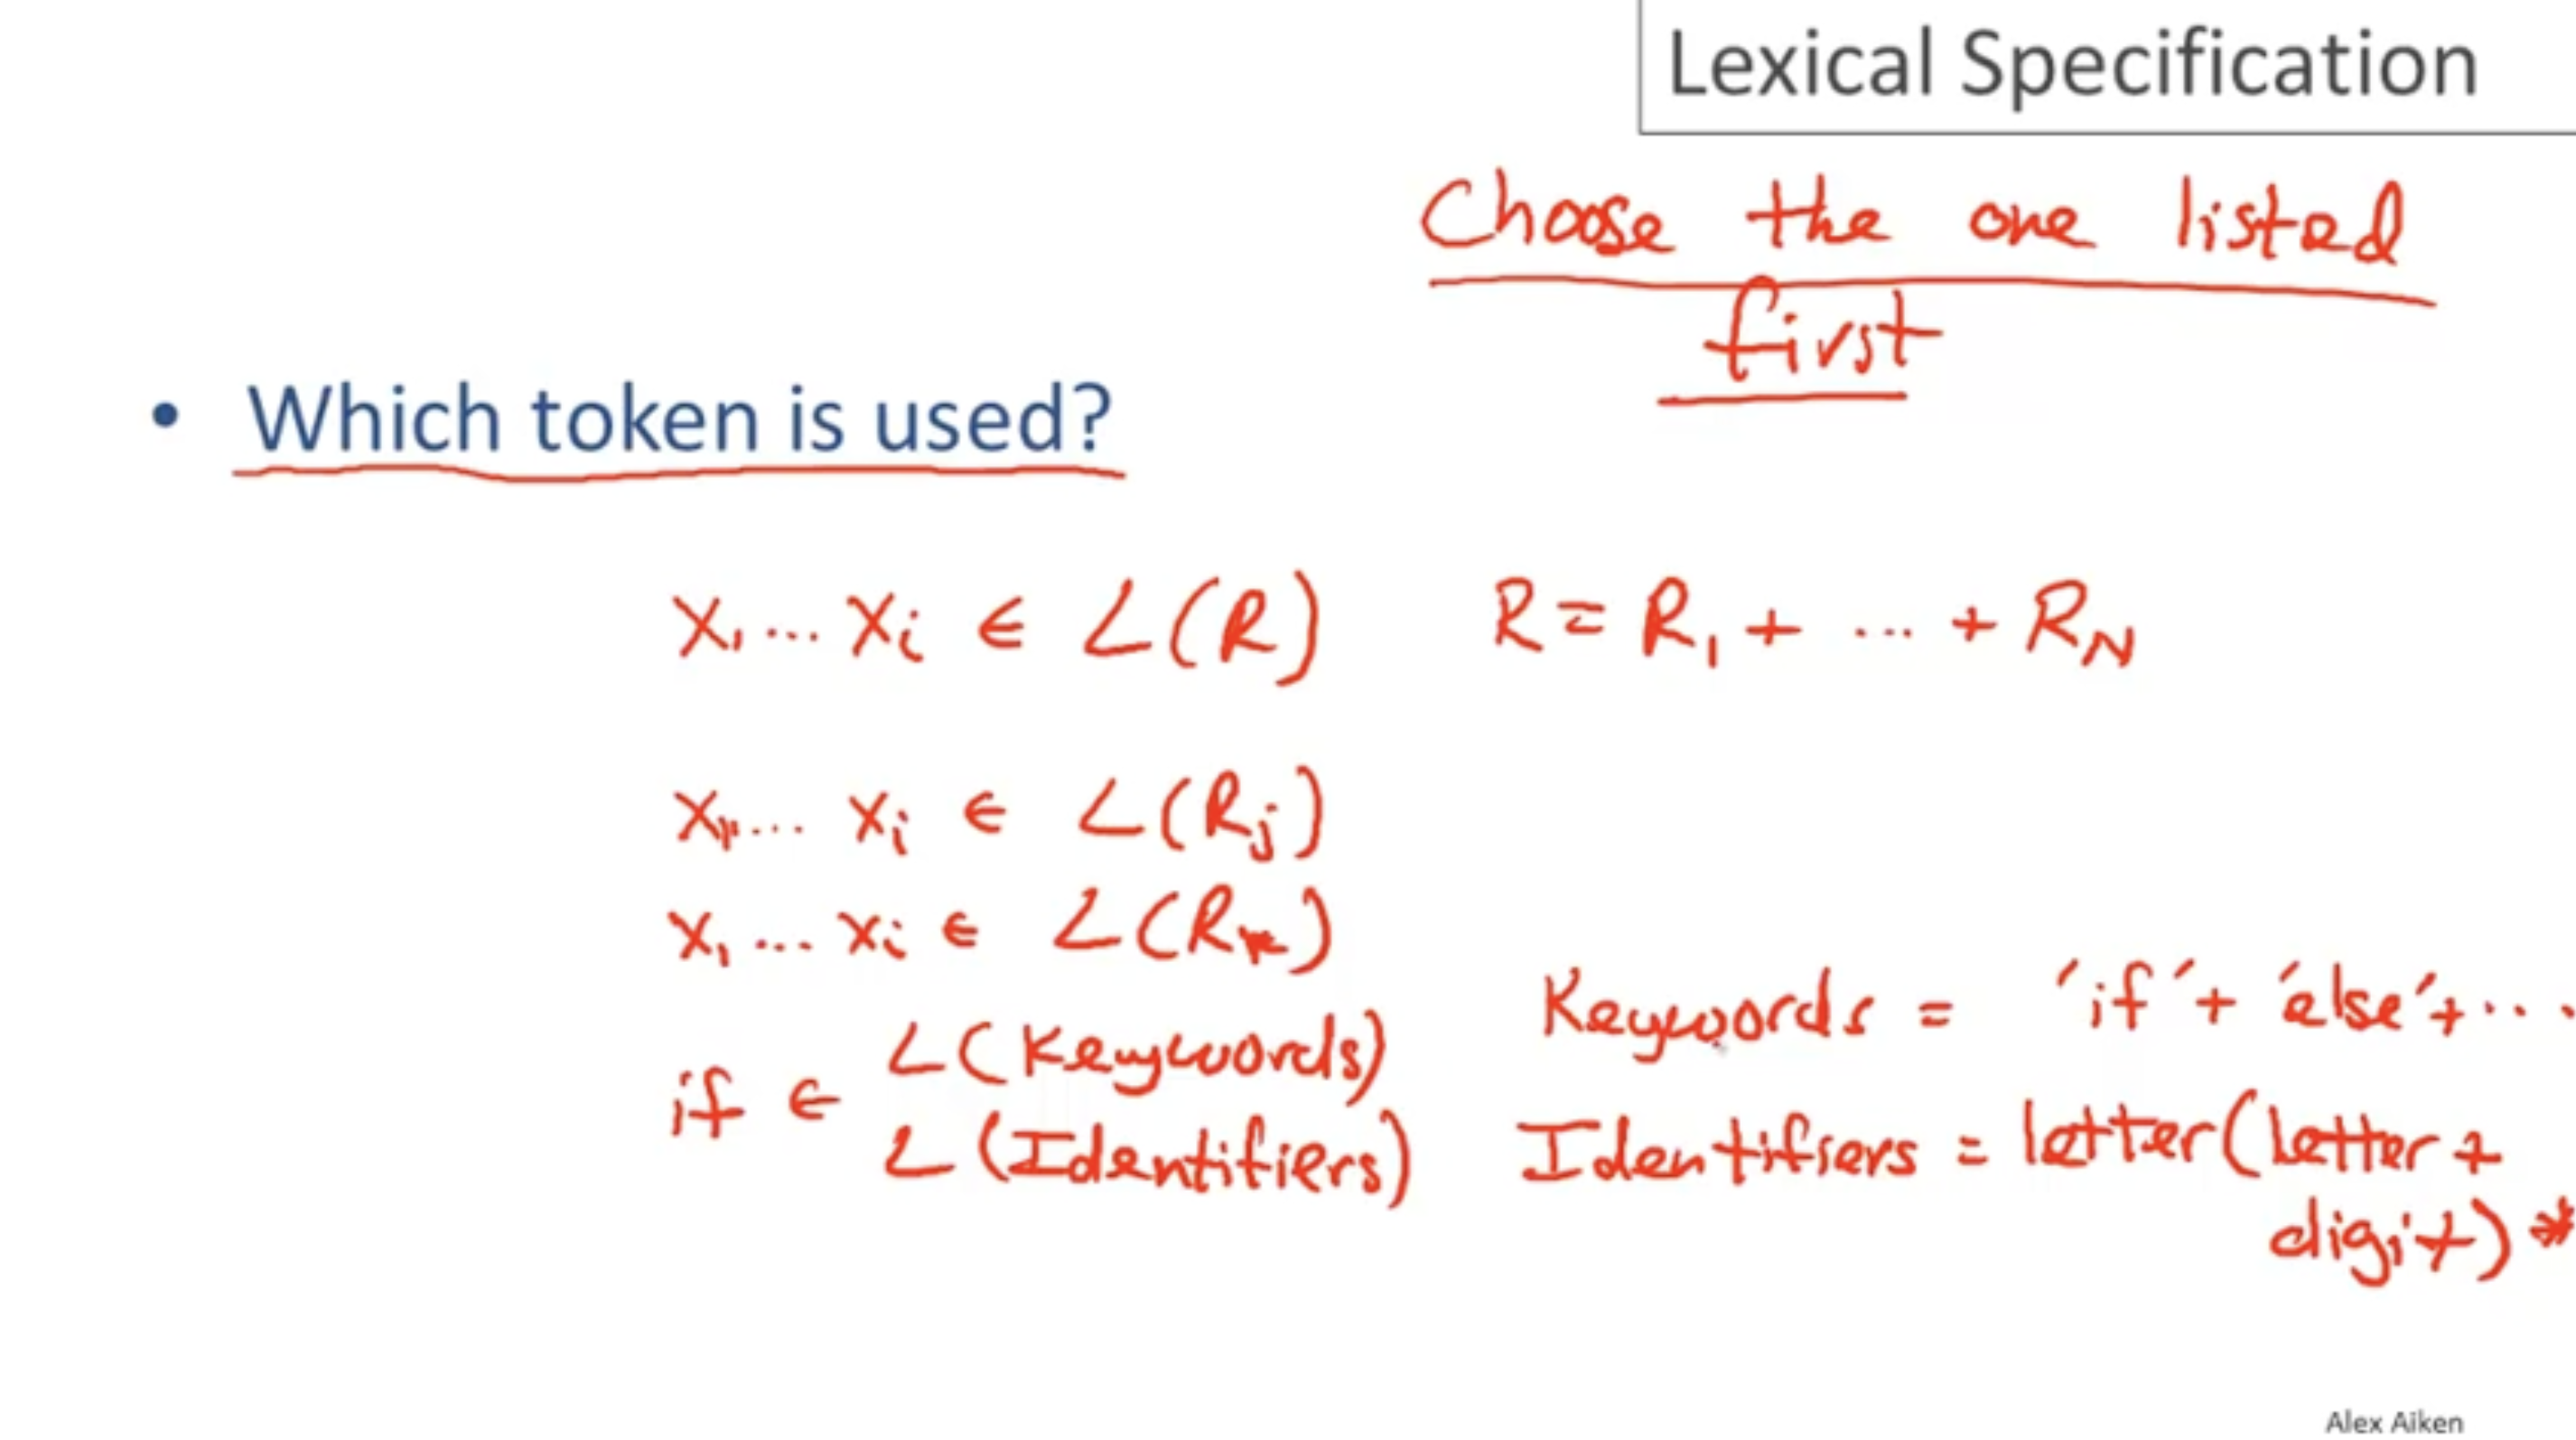 Lexical Specification
Choose the one listed
first
• Which token is used?
x₁ ... xᵢ ∈ L(R) R = R₁ + ... + R_N
x₁ ... xᵢ ∈ L(Rⱼ)
x₁ ... xᵢ ∈ L(Rₖ)
Keywords = 'if' + 'else' + ...
if ∈ L(Keywords)
L(Identifiers)
Identifiers = letter(letter +
digit)*
Alex Aiken